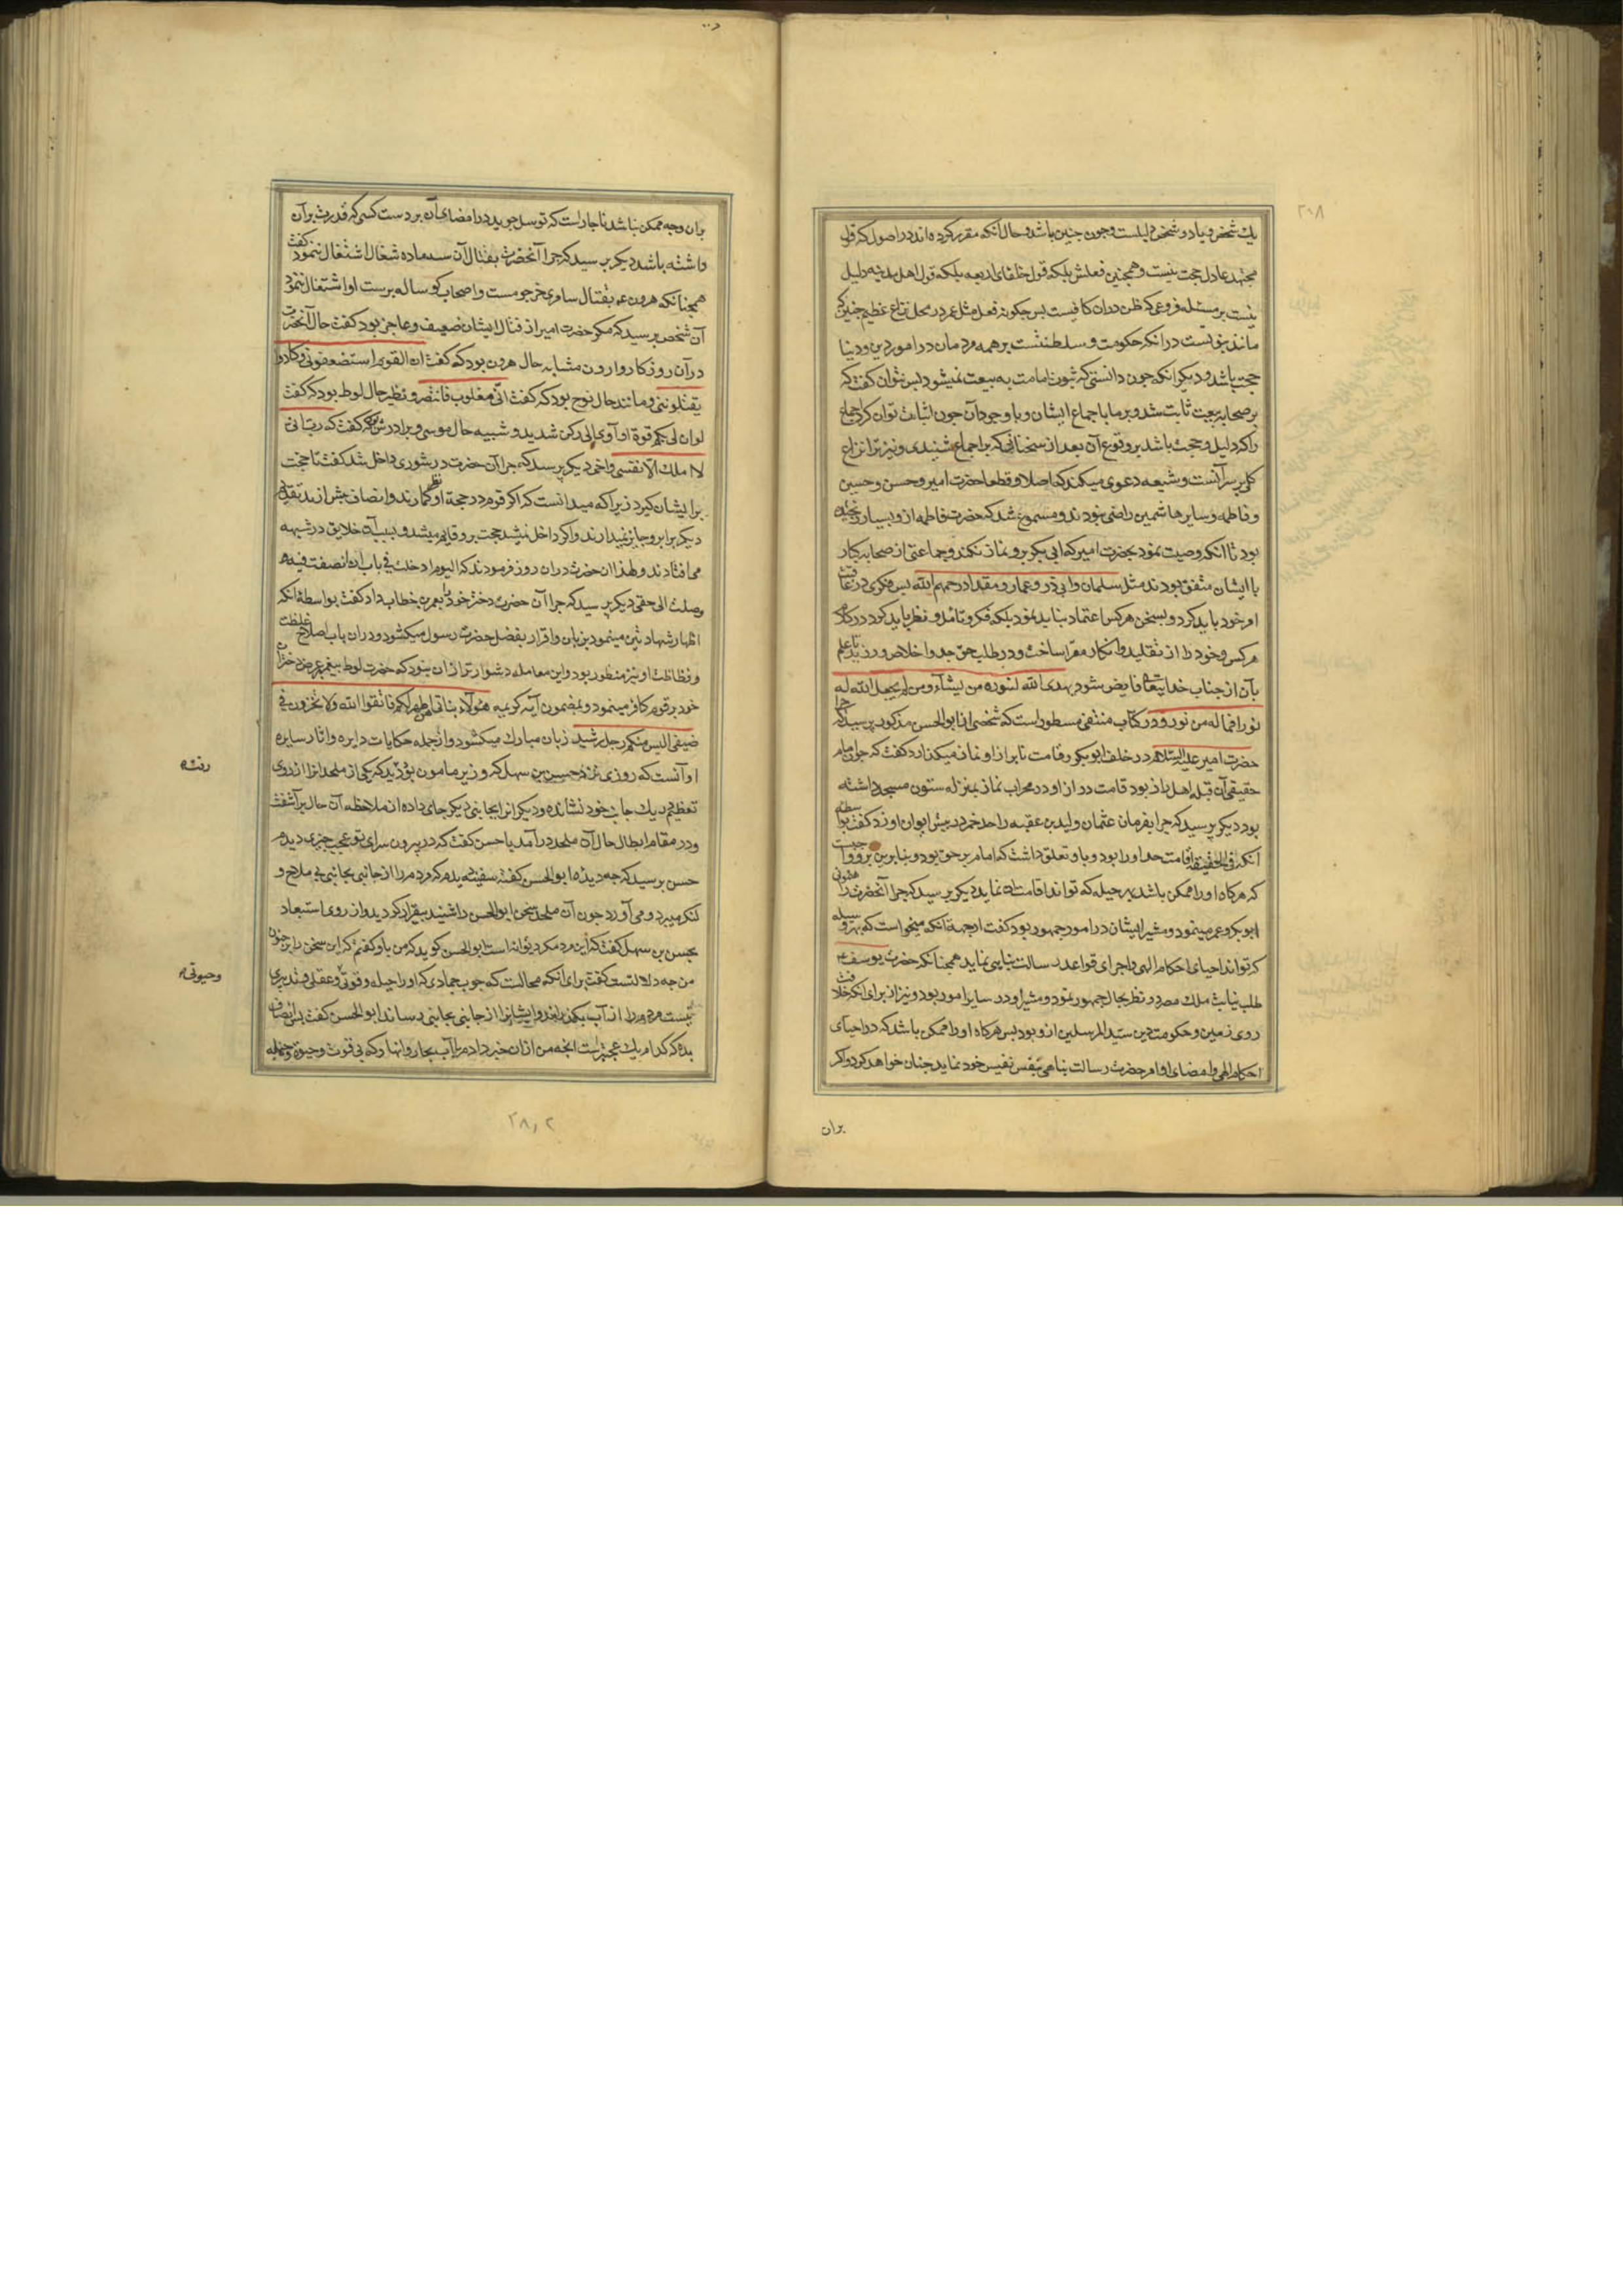 ۲۰۸
یك شخص و یا دو شخص دلیلست و چون چنین باشد و حال آنکه مقرر کرده اند در اصول که قول
مجتهد عادل حجت نیست و همچنین فعلش بلکه قول خلفای اربعه بلکه قول اهل مدینه دلیل
نیست بر مسئله فروعی که ظن دران کافیست پس چگونه فعل مثل عمر در محل نزاع عظیم چنین که
مانند نبوتست در انکه حکومت و سلطنتست بر همه مردمان در امور دین و دنیا
حجت باشد و دیگر انکه چون دانستی که ثبوت امامت به بیعت نمیشود پس نتوان گفت که
بر صحابه ببیعت ثابت شد و بر ما باجماع ایشان و با وجود آن چون اثبات توان کرد اجماع
را که دلیل و حجت باشد بر وقوع آن بعد از سخنانی که بر اجماع شنیدی و نیز ترا نزاع
کلی بر سر آنست و شیعه دعوی میکنند که اصلا و قطعا حضرت امیر و حسن و حسین
و فاطمه و سایر هاشمین راضی نبودند و مسموع شد که حضرت فاطمه ازو بسیار رنجیده
بود تا انکه وصیت نمود بحضرت امیر که ابی بکر برو نماز نکند و جماعتی از صحابه کبار
با ایشان متفق بودند مثل سلمان و ابی ذر و عمار و مقداد رحمهم الله پس فکری در عاقبت
امر خود باید کرد و بسخن هر کس اعتماد نباید نمود بلکه فکر و تامل و نظر باید کرد در کلام
هر کس و خود را از تقلید و انکار معرا ساخت و در طلب حق جد و اخلاص ورزید تا علم
بآن از جناب خدایتعالی فایض شود یهدی الله لنوره من یشآء و من لم یجعل الله له
نورا فما له من نور و در کتاب منتقی مسطور است که شخصی از ابوالحسن مذکور پرسید که چرا
حضرت امیر علیه السلام در خلف ابو بکر رفامت نابراز او نماز میکذارد گفت که چون امام
حقیقی آن قبله اهل راز بود قامت دراز او در محراب نماز بمنزله ستون مسجد داشته
بود دیکر پرسید که چرا بفرمان عثمان ولید بن عقبه را حد خمر در پیش ایوان او زد گفت بواسطه
آنکه فی الحقیقه اقامت حد او را بود و باو تعلق داشت که امام بر حق بود و بنابرین برو واجبست
که هر کاه او را ممکن باشد بهر حیله که تواند اقامت آن نماید دیکر پرسید که چرا آنحضرت راهنمونی
ابو بکر و عمر مینمود و مشیر ایشان در امور جمهور بود گفت ازجهة انکه میخواست که بهر وسیله
که تواند احیای احکام الهی و اجرای قواعد رسالت پناهی نماید همچنانکه حضرت یوسف ع
طلب نیابت ملك مصر و نظر بحال جمهور نمود و مشیر او در سایر امور بود و نیز از برای انکه خلافت
روی زمین و حکومت دین سید المرسلین ازو بود پس هر کاه او را ممکن باشد که در احیآی
احکام الهی و امضای اوامر حضرت رسالت پناهی بنفس نفیس خود نماید چنان خواهد کرد و اکر
بران
بران وجه ممکن نباشد ناچار است که توسل جوید در امضای آن بر دست کسی که قدرت بران
داشته باشد دیکر پرسید که چرا آنحضرت بقتال آن سه ماده شغال اشتغال ننمود گفت
همچنانکه هرون ع بقتال سامری و اصحاب کوساله پرست او اشتغال ننمود
آن شخص پرسید که مکر حضرت امیر از قتال ایشان ضعیف و عاجز بود گفت حال آنحضرت
در آن روزکار وارون مشابه حال هرون بود که گفت ان القوم استضعفونی و کادوا
یقتلوننی و مانند حال نوح بود که گفت انی مغلوب فانتصر و نظیر حال لوط بود که گفت
لو ان لی بکم قوة او آوی الی رکن شدید و شبیه حال موسی و برادرش که گفت که رب انی
لا املك الا نفسی و اخی دیکر پرسید که چرا آن حضرت در شوری داخل شد گفت تا حجت
بر ایشان کیرد زیرا که میدانست که اکر قوم در حجة او نظر کمارند و انصاف پیش ارند تقدیم
دیکری برو جایز نمیدارند و اکر داخل نمیشد حجت برو قایم میشد و بسبب آن خلایق در شبهه
می افتادند و لهذا ان حضرت دران روز فرمودند که الیوم ادخلت فی باب اذا انصفت فیه
وصلت الی حقی دیکر پرسید که چرا آن حضرت دختر خود را بعمر بن خطاب داد کفت بواسطه انکه
اظهار شهادتین مینمود بزبان و اقرار بفضل حضرت رسول میکشود و دران باب اصلاح غلظت
و فظاظت او نیز منظور بود و این معامله دشوارتر از ان نبود که حضرت لوط پیغمبر عرض دختران
خود بر قوم کافر مینمود و بمضمون آیه کریمه هؤلاء بناتی هن اطهر لکم فاتقوا الله و لا تخزون فی
ضیفی الیس منکم رجل رشید زبان مبارك میکشود و ازجمله حکایات دایره و اثار سایره
او آنست که روزی نزد حسن بن سهل که وزیر مامون بود دید که یکی از ملحدانرا از روی
رفته
تعظیم در یك جانب خود نشانده و دیکرانرا بجانبی دیکر جای داده از ملاحظه آن حال برآشفت
و در مقام ابطال حال آن ملحد درآمد با حسن گفت که در بیرون سرای تو عجب چیزی دیدم
حسن پرسید که چه دیدهٔ ابوالحسن گفت سفینه دیدم که مردم را از جانبی بجانبی بی ملاح و
لنکر میبرد و می آورد چون آن ملحد سخن ابوالحسن را شنید بیقرار کردید و از روی استبعاد
بحسن بن سهل گفت که این مرد مکر دیوانه است ابوالحسن کوید که من باو گفتم که این سخن را بر جنون
من چه دلالتست گفت برای انکه محالست که چوب جمادی که او را حیله و قوتی و عقلی و تدبیری
وحیوتی
نیست مردم را از آب بکذراند و ایشانرا از جانبی بجانبی رساند ابوالحسن گفت پس انصاف
بده که کدام یك عجیبتر است انچه من ازان خبر دادم یا آب بحار و انهار که بی قوت و حیوة و حیله
۲۸٫۲